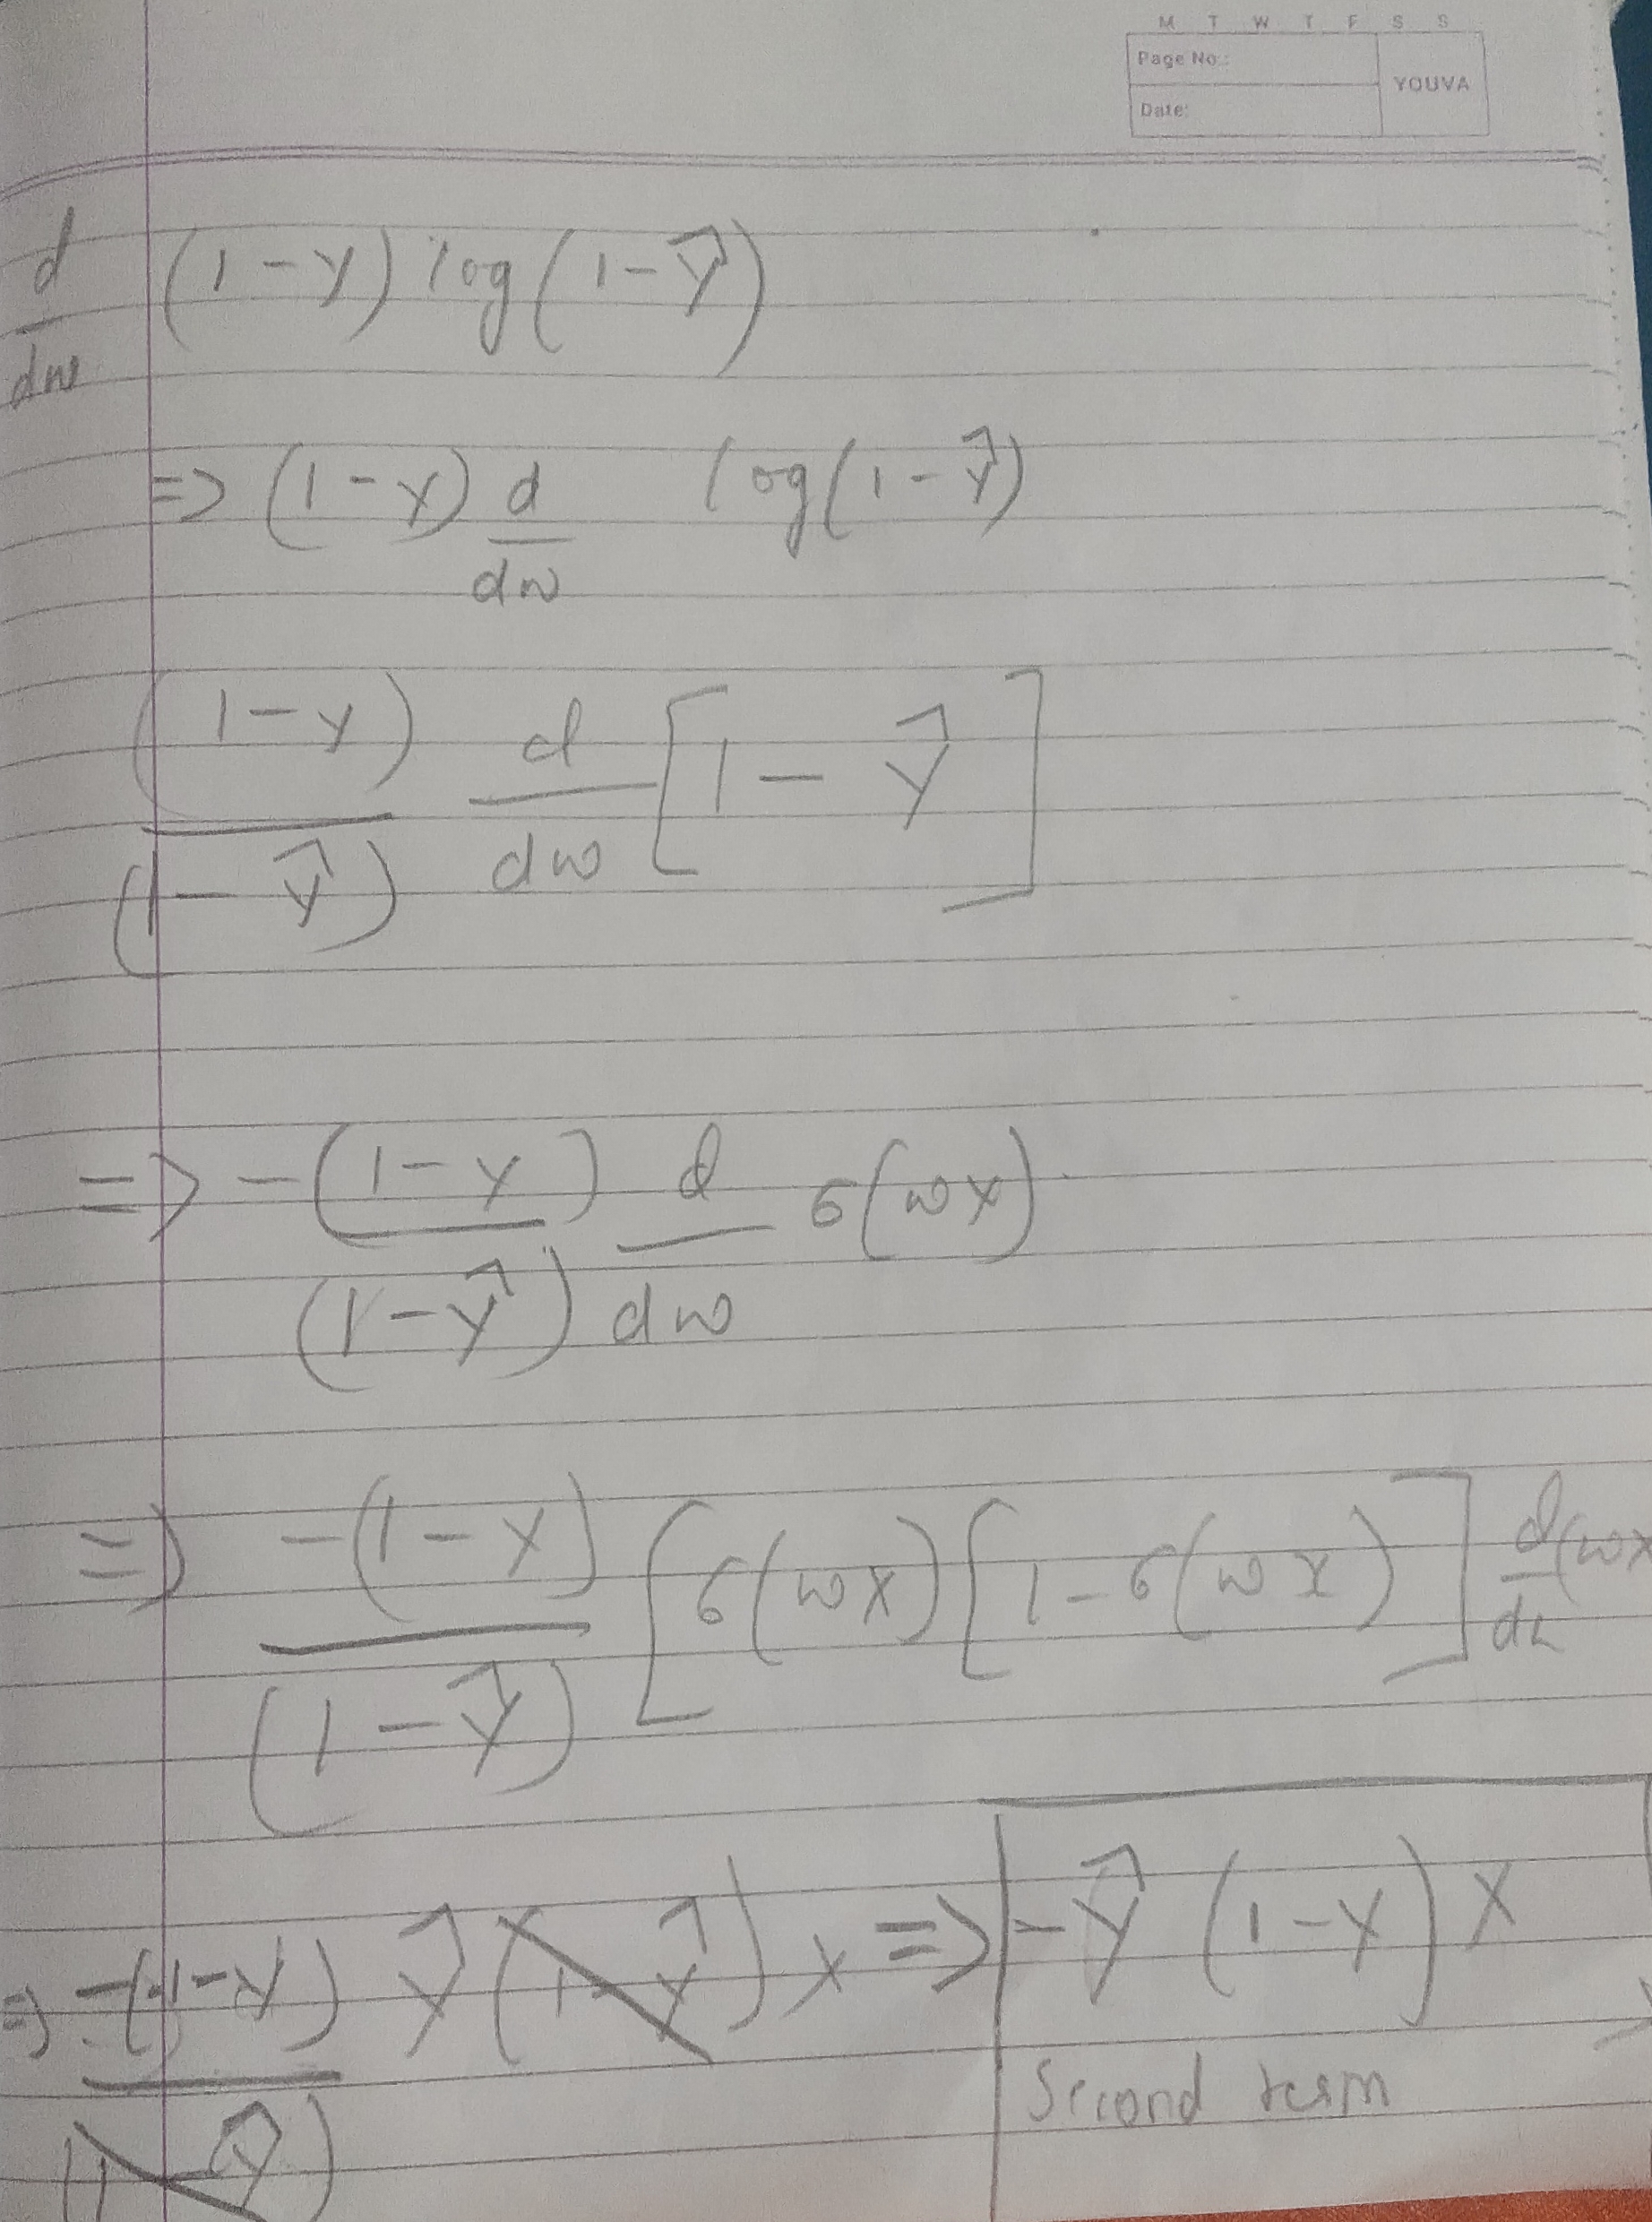 M T W T F S S
Page No.:
YOUVA
Date:
d/dw (1-y) log(1-ŷ)
=> (1-y) d/dw log(1-ŷ)
(1-y)/(1-ŷ) d/dw [1-ŷ]
=> -(1-y)/(1-ŷ) d/dw σ(wx)
=> -(1-y)/(1-ŷ) [σ(wx)[1-σ(wx)] d/d (wx
=> -(1-y)/(1-ŷ) ŷ(1-ŷ)x => -ŷ(1-y)x
Second term